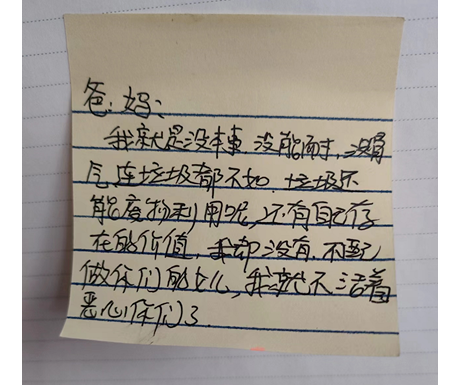 爸.妈:
我就是没本事 没能耐, 没骨
气连垃圾都不如. 垃圾还
能废物利用呢, 还有自己存
在的价值, 我却没有. 不配
做你们的女儿, 我就不活着
恶心你们了.